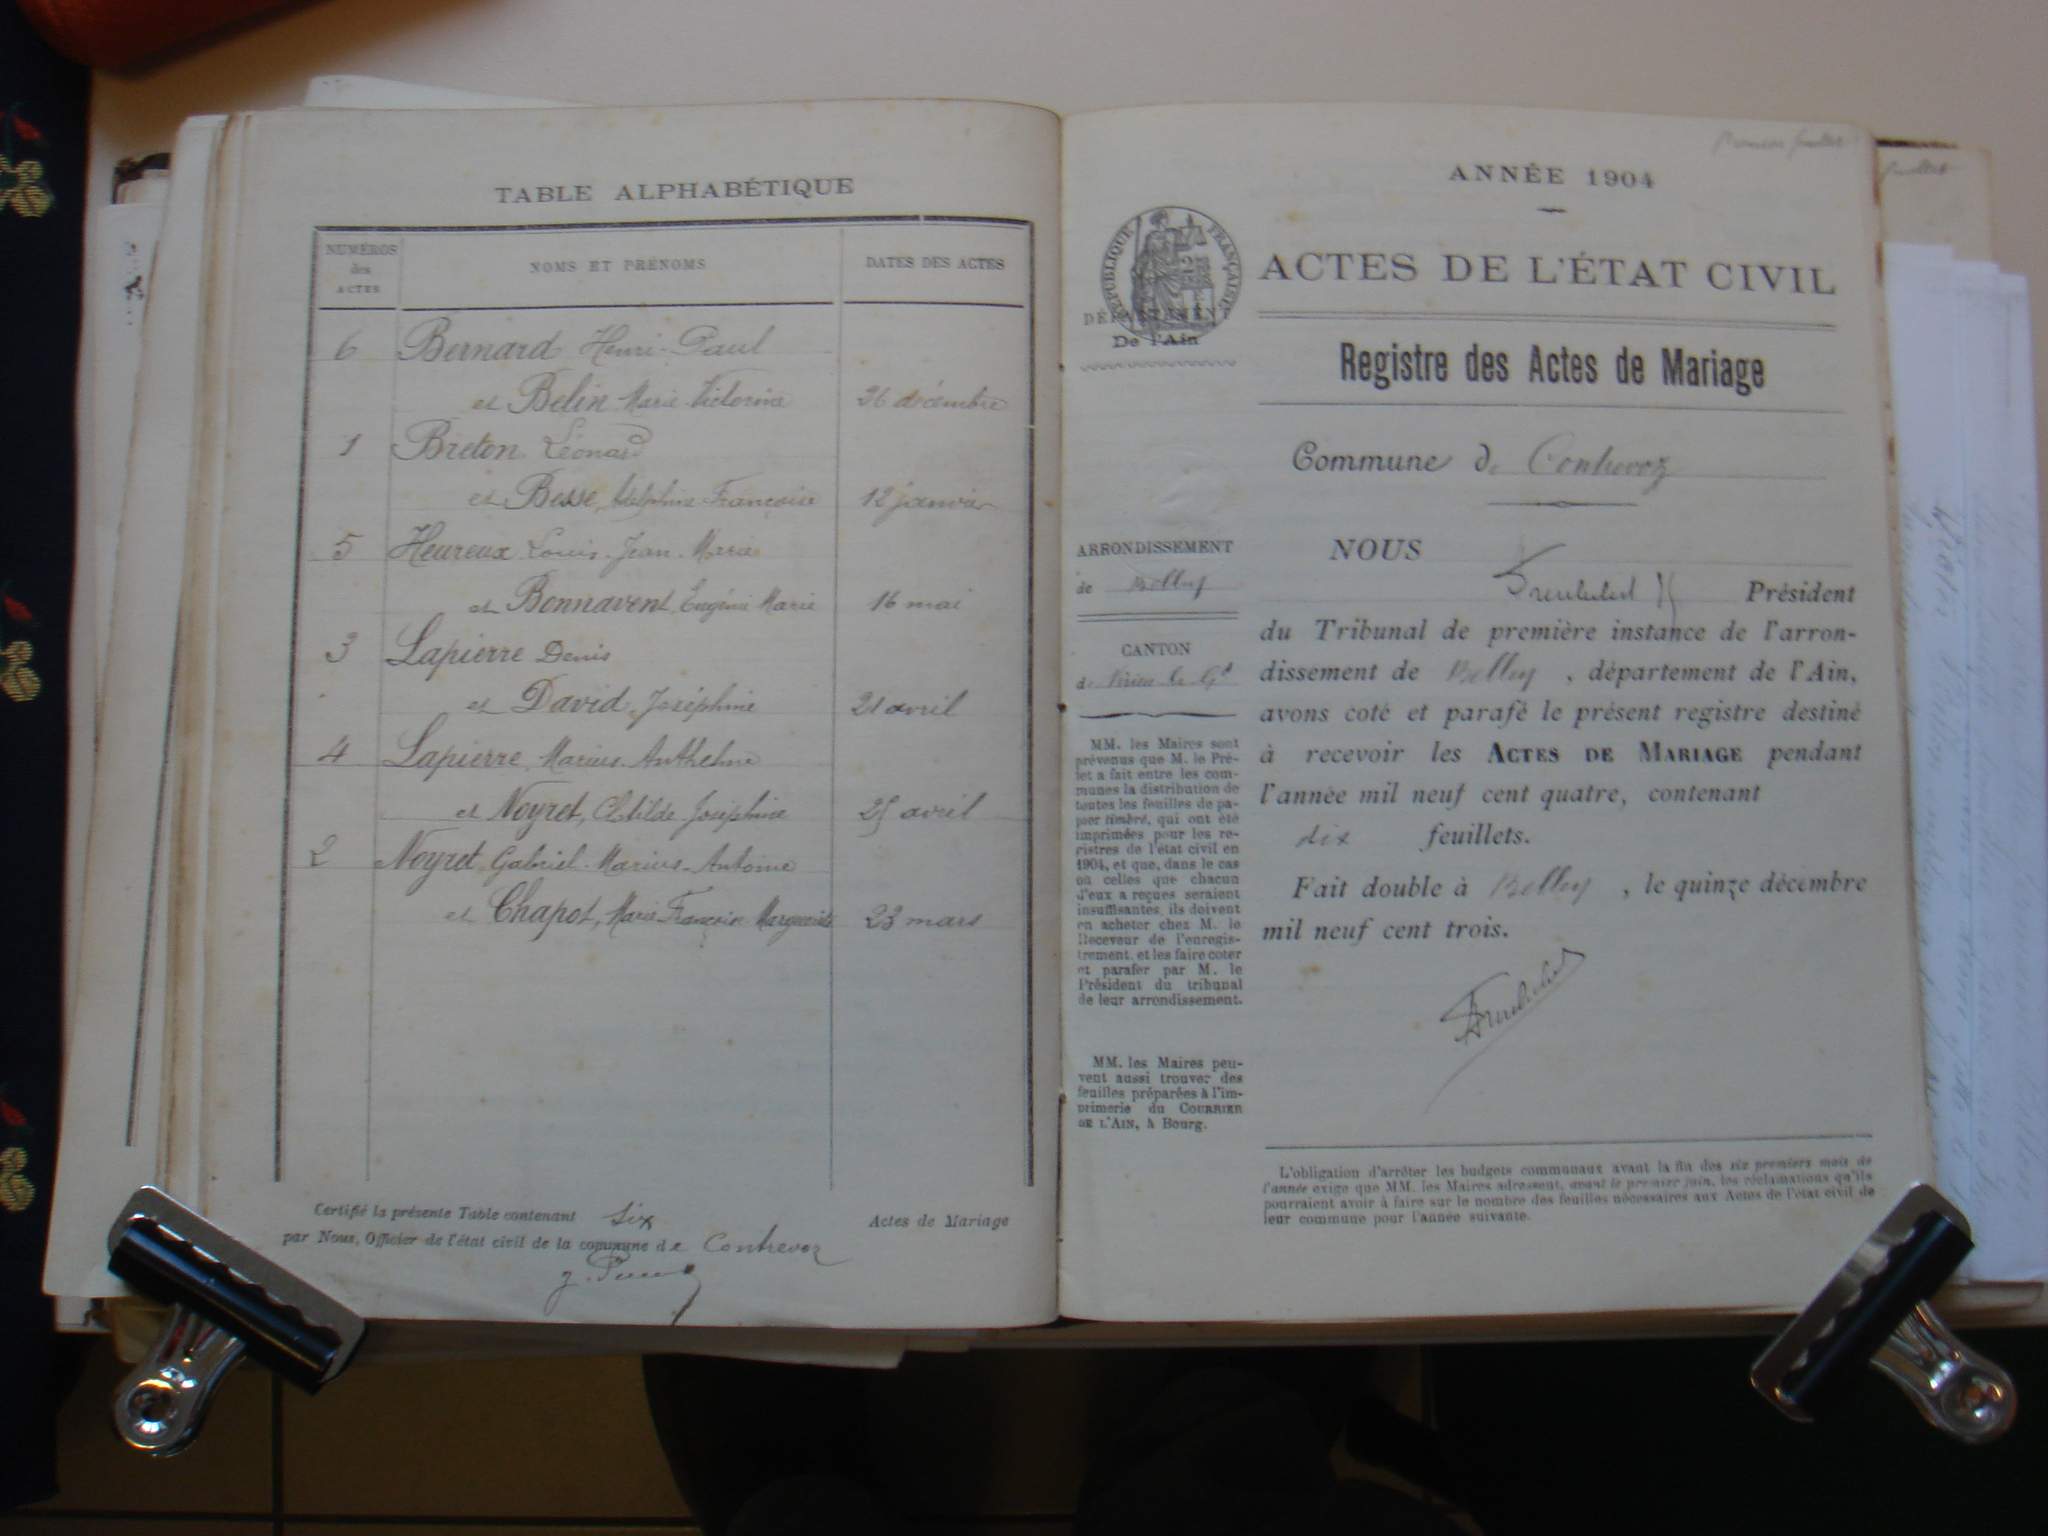 TABLE ALPHABÉTIQUE
NUMÉROS
des
ACTES
NOMS ET PRÉNOMS
DATES DES ACTES
6 Bernard Henri-Paul
et Belin Marie-Victorine 26 décembre
1 Breton Léonard
et Besse, Delphine-Françoise 12 janvier
5 Heureux Louis-Jean-Marie
et Bonnavent, Eugénie Marie 16 mai
3 Lapierre Denis
et David, Joséphine 21 avril
4 Lapierre, Marius-Anthelme
et Noyret, Clotilde-Joséphine 25 avril
2 Noyret, Gabriel-Marius-Antoine
et Chapot, Marie-Françoise Marguerite 23 mars
Certifié la présente Table contenant six Actes de Mariage
par Nous, Officier de l'état civil de la commune de Contrevoz
premier feuillet
feuillet
ANNÉE 1904
RÉPUBLIQUE FRANÇAISE
DÉPARTEMENT
De l'Ain
ACTES DE L'ÉTAT CIVIL
Registre des Actes de Mariage
Commune de Contrevoz
ARRONDISSEMENT
de Belley
CANTON
de Virieu le Gd
MM. les Maires sont
prévenus que M. le Pré-
fet a fait entre les com-
munes la distribution de
toutes les feuilles de pa-
pier timbré, qui ont été
imprimées pour les re-
gistres de l'état civil en
1904, et que, dans le cas
où celles que chacun
d'eux a reçues seraient
insuffisantes, ils doivent
en acheter chez M. le
Receveur de l'enregis-
trement, et les faire coter
et parafer par M. le
Président du tribunal
de leur arrondissement.
MM. les Maires peu-
vent aussi trouver des
feuilles préparées à l'im-
primerie du COURRIER
DE L'AIN, à Bourg.
NOUS
Président
du Tribunal de première instance de l'arron-
dissement de Belley, département de l'Ain,
avons coté et parafé le présent registre destiné
à recevoir les ACTES DE MARIAGE pendant
l'année mil neuf cent quatre, contenant
dix feuillets.
Fait double à Belley, le quinze décembre
mil neuf cent trois.
L'obligation d'arrêter les budgets communaux avant la fin des six premiers mois de
l'année exige que MM. les Maires adressent, avant le premier juin, les réclamations qu'ils
pourraient avoir à faire sur le nombre des feuilles nécessaires aux Actes de l'état civil de
leur commune pour l'année suivante.